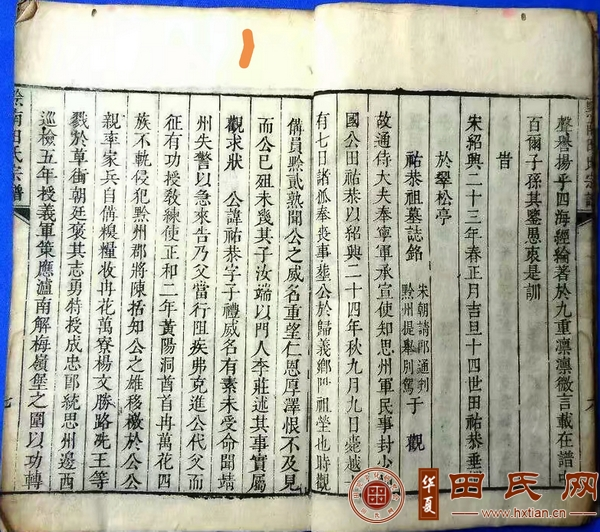 聲譽揚乎四海經綸著於九重凛凛微言載在譜
百爾子孫其鑒思衷是訓
旹
宋紹興二十三年春正月吉旦十四世田祐恭垂
於翠松亭
祐恭祖墓誌銘
宋朝請郎通判
黔州提舉別駕
于觀
故通侍大夫奉寧軍承宣使知思州軍民事封少
國公田祐恭以紹興二十四年秋九月九日薨越
有七日諸孤奉喪事葬公於歸義鄉祖塋也時觀
備員黔貳熟聞公之威名重望仁恩厚澤恨不及見
而公已殂未幾其子汝端以門人李莊述其事實屬
觀求狀 公諱祐恭字子禮威名有素未受命聞靖
州失警以急來告乃父當行阻疾弗克進公代父而
征有功授敎練使正和二年黃陽洞酋冉萬花四
族不軌侵犯黔州郡將陳括知公之雄移檄於公公
親率家兵自備糗糧收冉花萬寮楊文勝路冼王等
戮於草街朝廷褒其志勇特授成忠郎統思州邊西
巡檢五年授義軍策應瀘南解梅嶺堡之圍以功轉
黔南田氏宗譜
七
華夏
田氏网
www.hxtian.cn